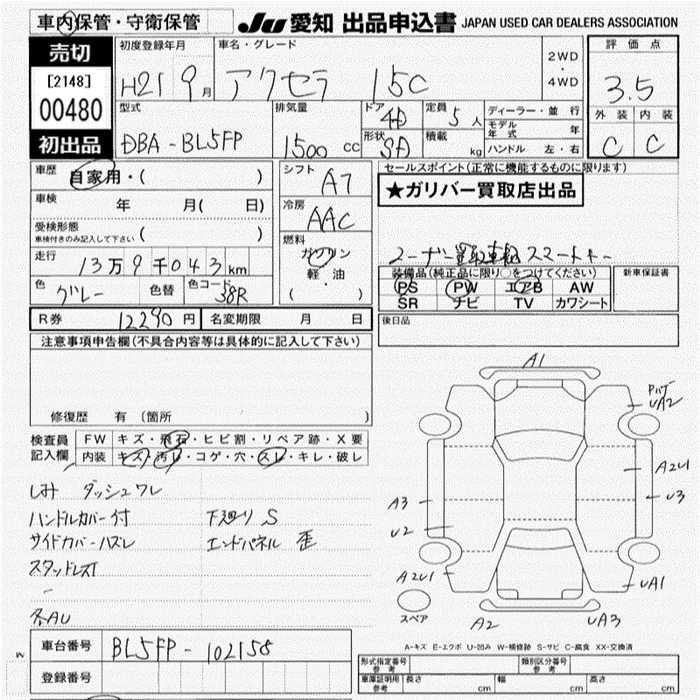 車内保管・守衛保管
JU 愛知 出品申込書 JAPAN USED CAR DEALERS ASSOCIATION
売切
[2148]
00480
初出品
初度登録年月
H21 9月
車名・グレード
アクセラ 15C
2WD
・
4WD
評価点
3.5
外装 内装
C C
型式
DBA-BL5FP
排気量
1500 cc
ドア
4D
形状
SD
定員
5人
積載
kg
ディーラー・並行
モデル年式 年
ハンドル 左・右
車歴
自家用・( )
車検 年 月( 日)
受検形態
車検付きのみ記入して下さい ( )
走行
13万9千043km
色
グレー
色替
色コード
38R
シフト
A7
冷房
AAC
燃料
ガソリン
軽・油
( ・ )
セールスポイント(正常に機能するものに限ります)
★ガリバー買取店出品
ユーザー買取車輌 スマートキー
装備品(純正品に限り○をつけてください)
PS PW エアB AW
SR ナビ TV カワシート
新車保証書
後日品
R券 12290円
名変期限 月 日
注意事項申告欄(不具合内容等は具体的に記入して下さい)
修復歴 有(箇所 )
検査員記入欄
FW キズ・飛石・ヒビ割・リペア跡・X要
内装 キズ・汚レ・コゲ・穴・スレ・キレ・破レ
しみ ダッシュワレ
ハンドルカバー付 下廻り S
サイドカバーハズレ エンドパネル 歪
スタッドレスT
各AU
A1
UA2
A2U1
U3
A3
U2
A2U1
UA1
スペア
A2
UA3
A-キズ E-エクボ U-凹み W-補修跡 S-サビ C-腐食 XX-交換済
車台番号 BL5FP-102158
登録番号
形式指定番号 参考
類別区分番号 参考
車庫証明用 参考 長さ cm 幅 cm 高さ cm